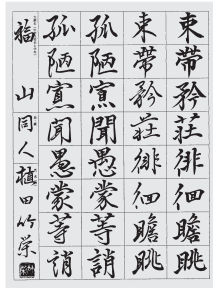 束帶矜莊徘徊瞻眺
束帶矜莊徘徊瞻眺
孤陋寡聞愚蒙等誚
孤陋寡聞愚蒙等誚
福山 同人 植田竹栄